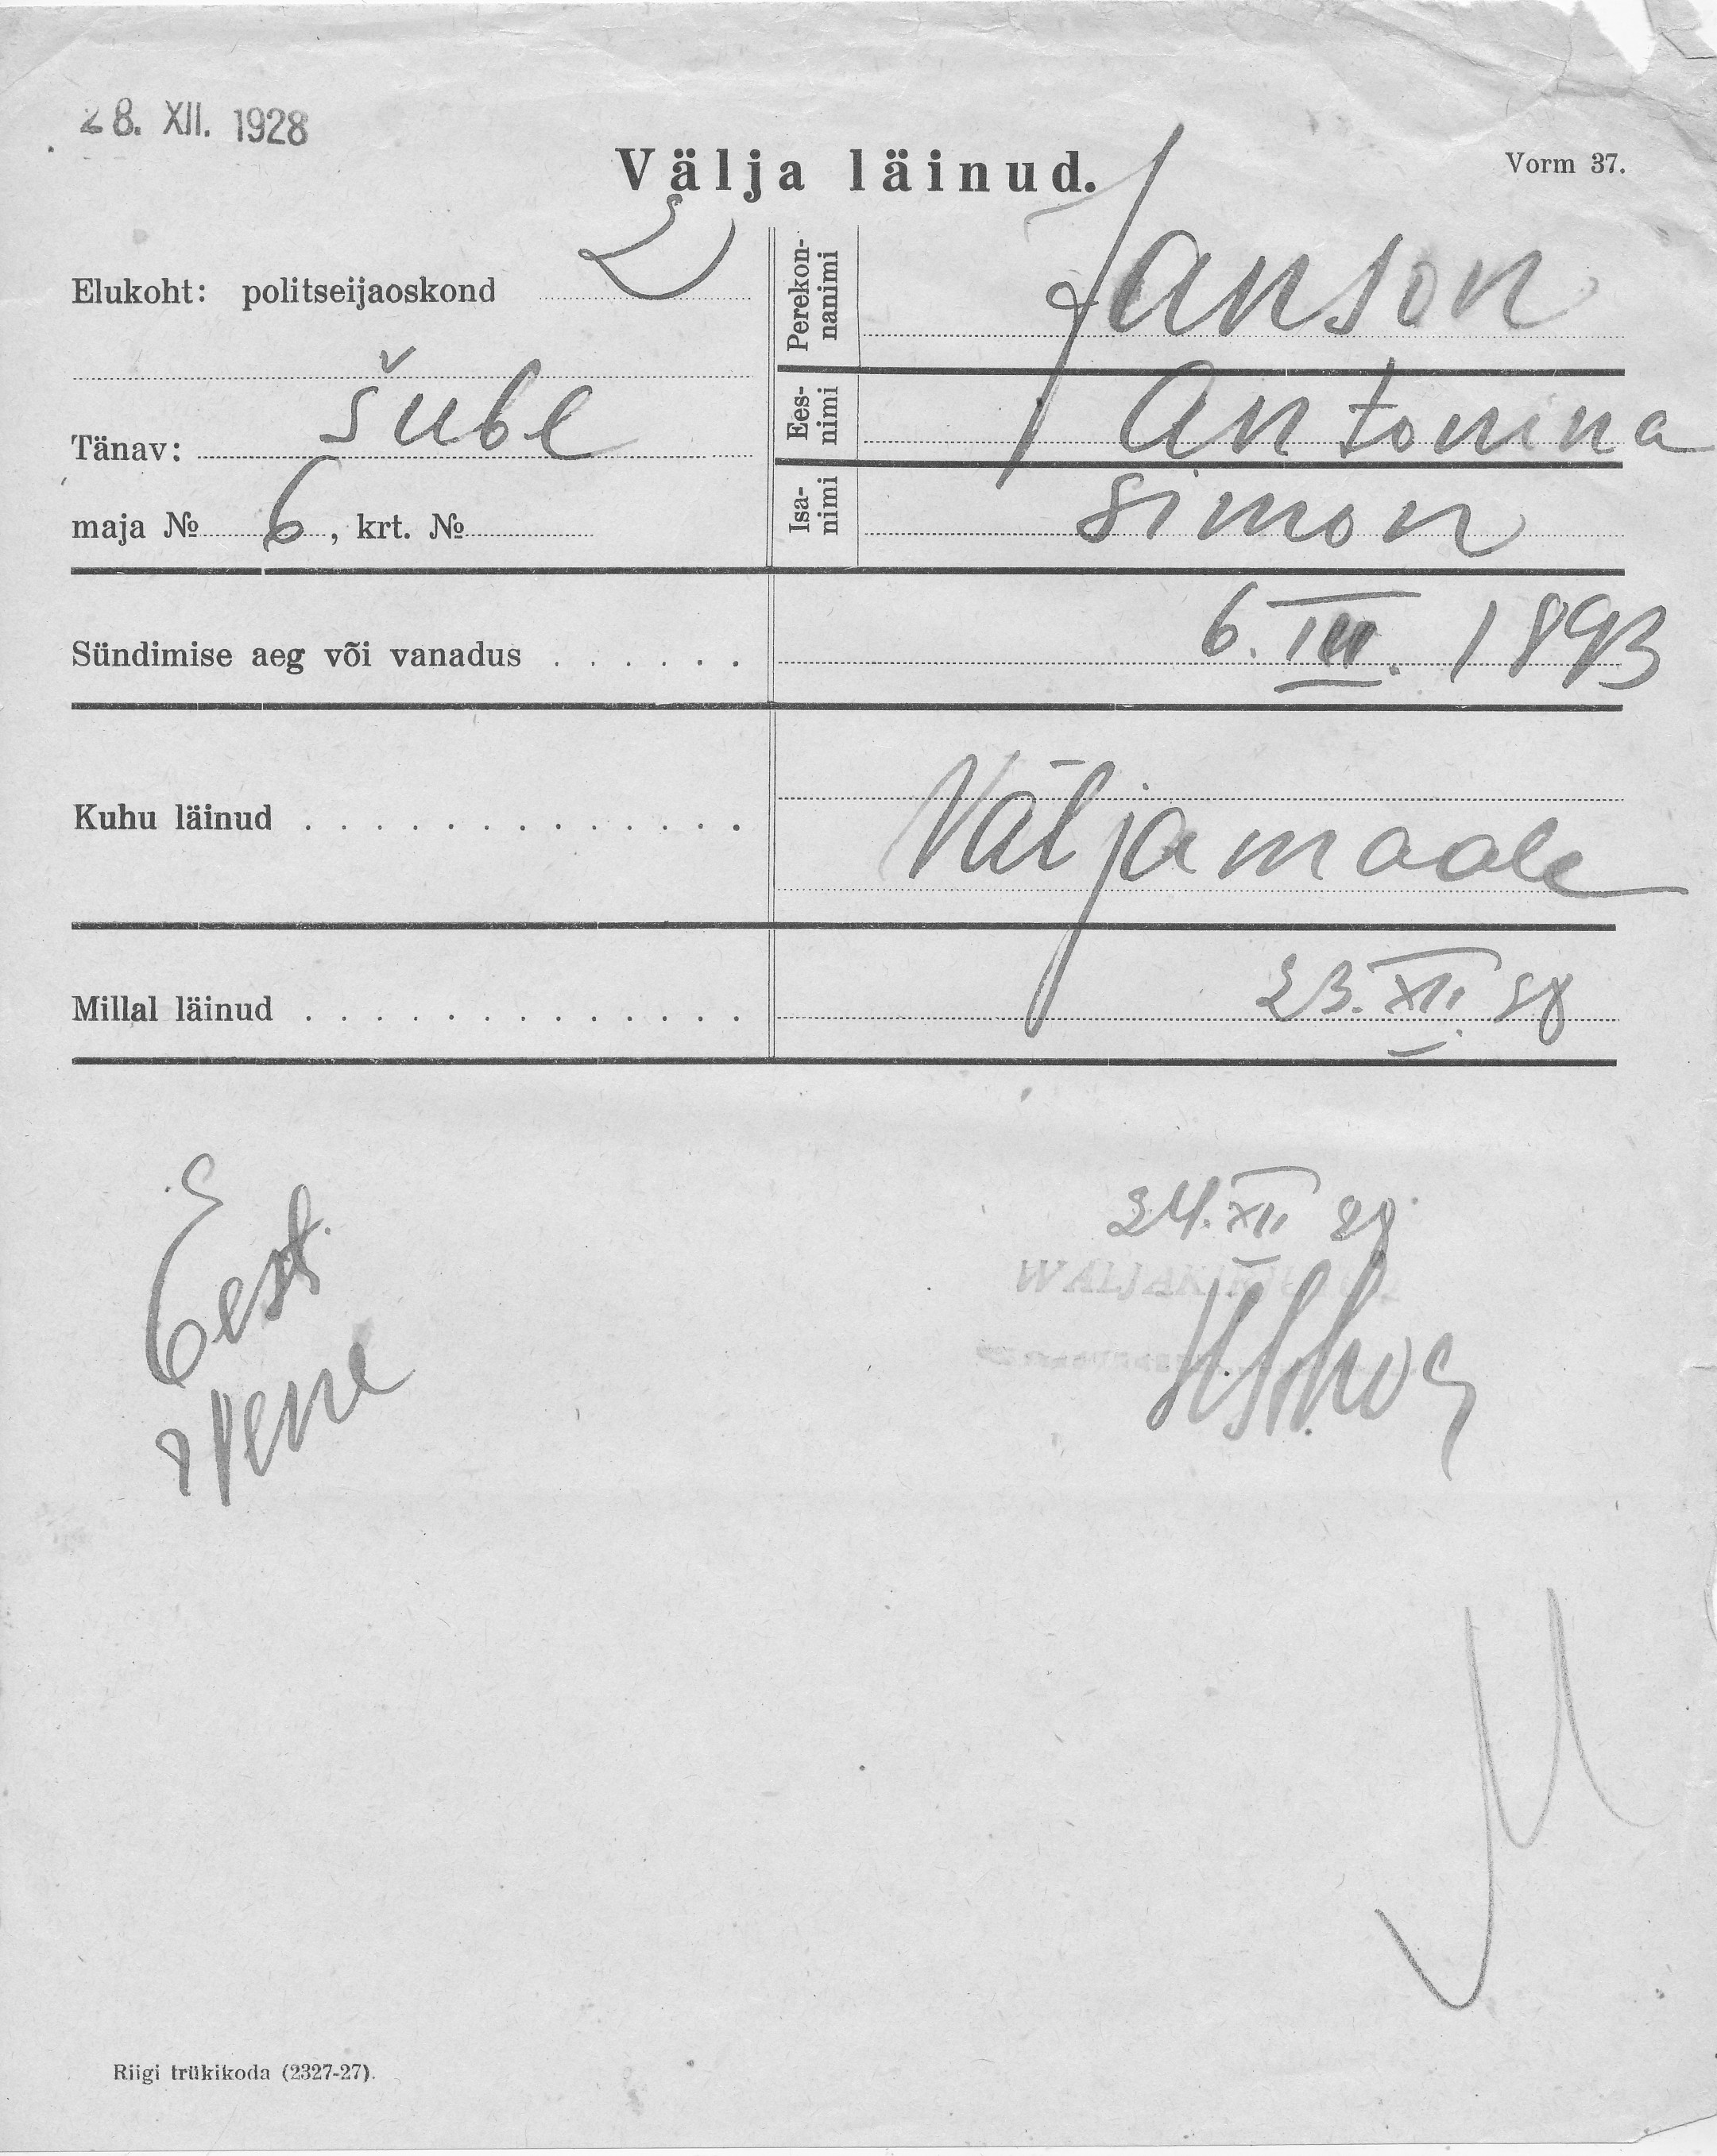 28. XII. 1928
Välja läinud.
Vorm 37.
Elukoht: politseijaoskond 2
Tänav: Šube
maja № 6, krt. №
Perekon-
nanimi
Janson
Ees-
nimi
Antonina
Isa-
nimi
Simon
Sündimise aeg või vanadus . . . . . . 6. III. 1893
Kuhu läinud . . . . . . . . . . . . . Väljamaale
Millal läinud . . . . . . . . . . . . . 23. XII. 28
Eest.
Vene
24. XII 28.
Riigi trükikoda (2327-27).